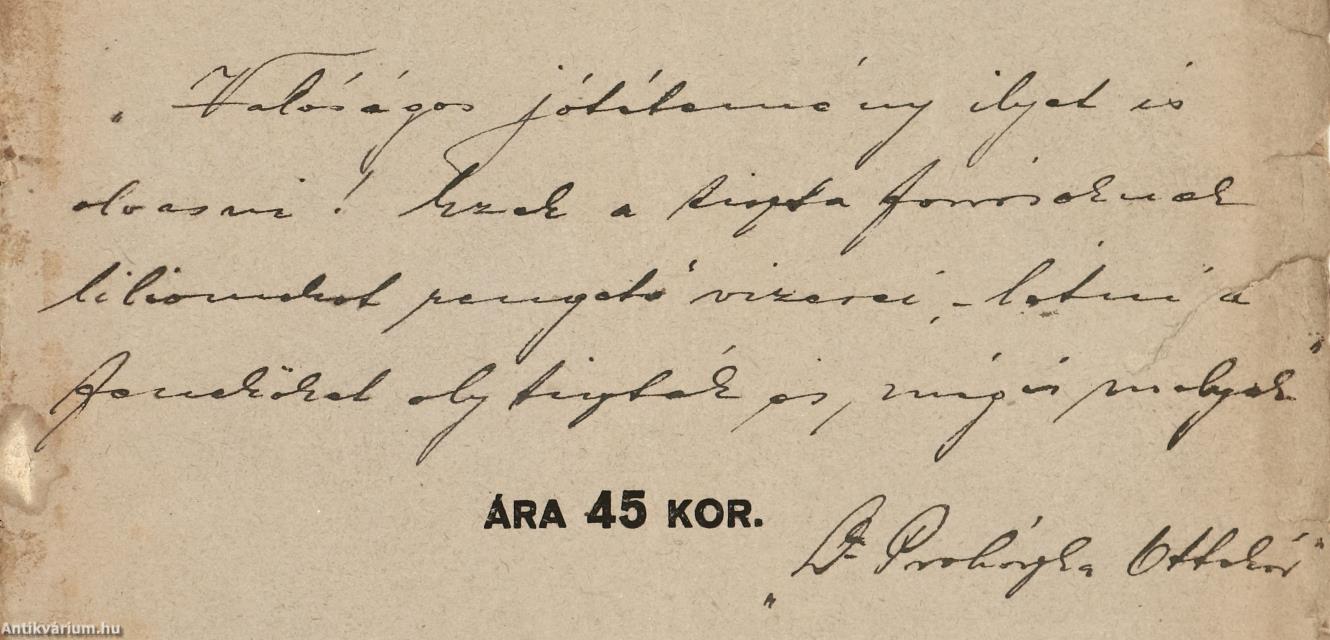 „Valóságos jótétemény ilyet is
olvasni! Ezek a tiszta forrásoknak
liliomokat rengető vizerei, - látni a
feneköket oly tiszták és, mégis mélyek"
ÁRA 45 KOR.
„Dr Prohászka Ottokár"
Antikvárium.hu